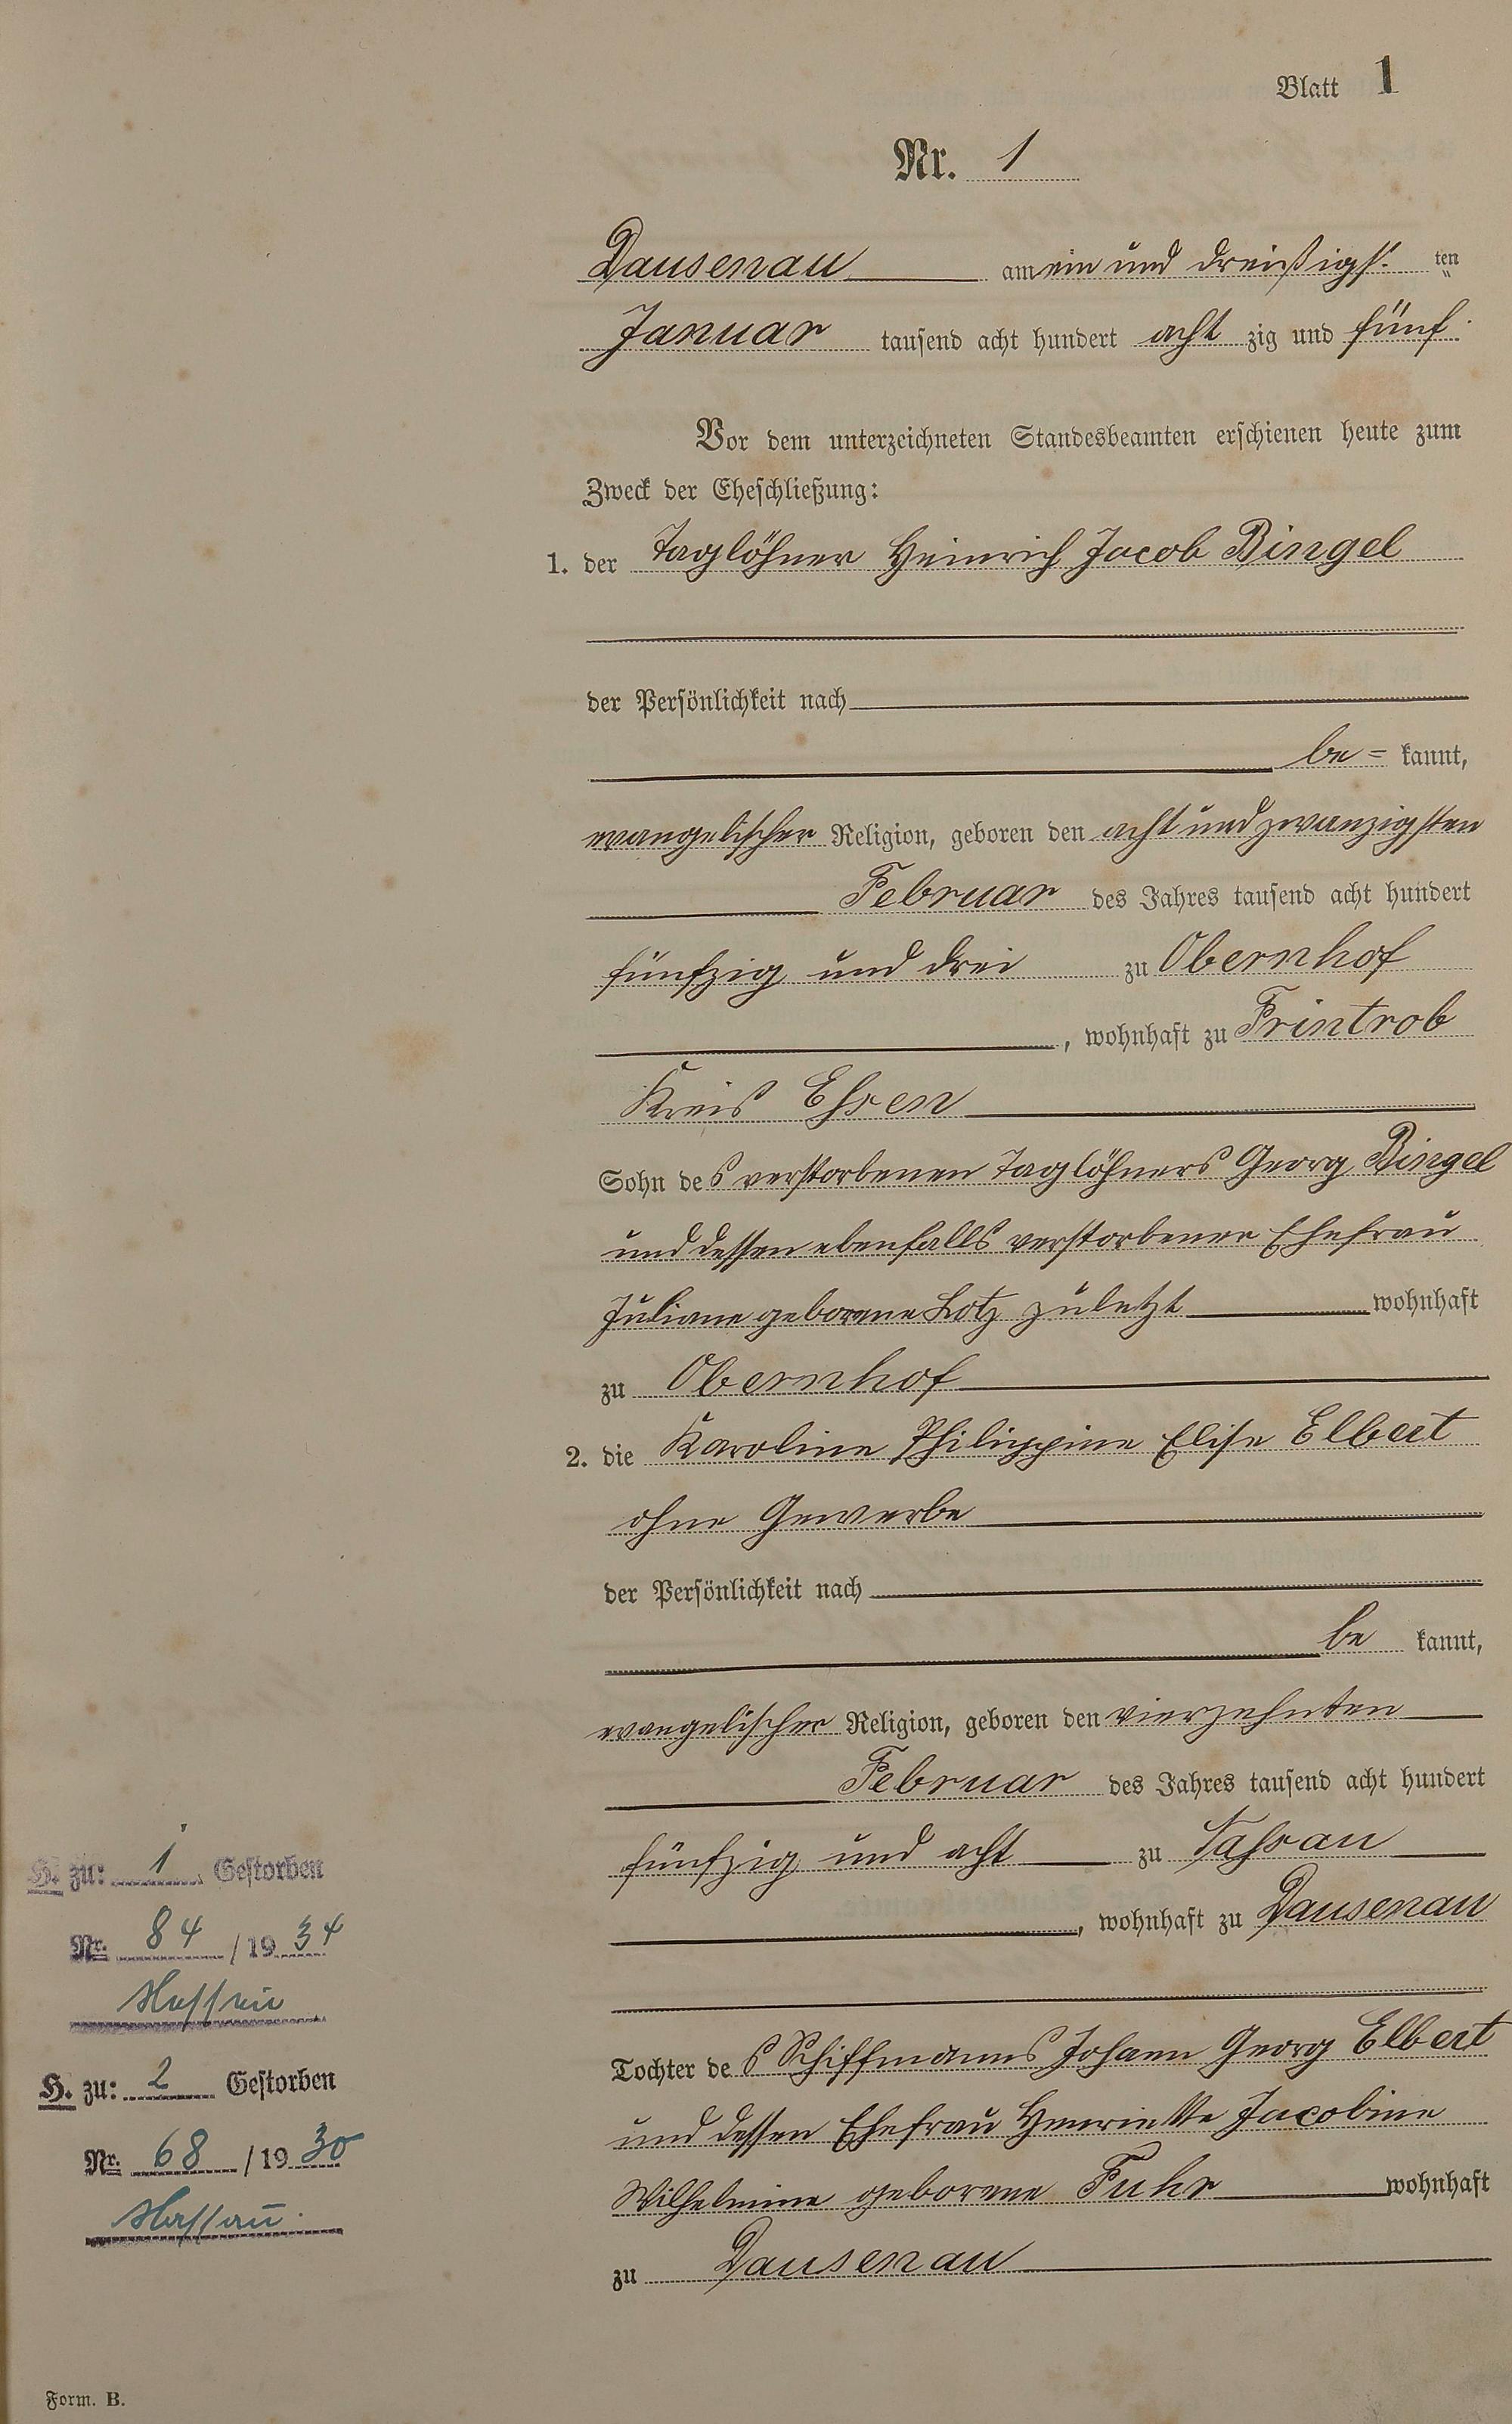 Blatt 1
Nr. 1
Dausenau am ein und dreißigst. ten
Januar tausend acht hundert acht zig und fünf.
Vor dem unterzeichneten Standesbeamten erschienen heute zum
Zweck der Eheschließung:
1. der Taglöhner Heinrich Jacob Bingel
der Persönlichkeit nach
be= kannt,
evangelischer Religion, geboren den acht und zwanzigsten
Februar des Jahres tausend acht hundert
fünfzig und drei zu Obernhof
, wohnhaft zu Frintrob
Kreis Essen
Sohn des verstorbenen Taglöhners Georg Bingel
und dessen ebenfalls verstorbener Ehefrau
Juliane geborene Lotz zuletzt wohnhaft
zu Obernhof
2. die Karoline Philippine Elise Elbert
ohne Gewerbe
der Persönlichkeit nach
be kannt,
evangelischer Religion, geboren den vierzehnten
Februar des Jahres tausend acht hundert
fünfzig und acht zu Nassau
, wohnhaft zu Dausenau
Tochter des Schiffmanns Johann Georg Elbert
und dessen Ehefrau Henriette Jacobine
Wilhelmine geborene Fuhr wohnhaft
zu Dausenau
H. zu: 1 Gestorben
Nr. 84 / 19 34
Nassau
H. zu: 2 Gestorben
Nr. 68 / 19 30
Nassau.
Form. B.